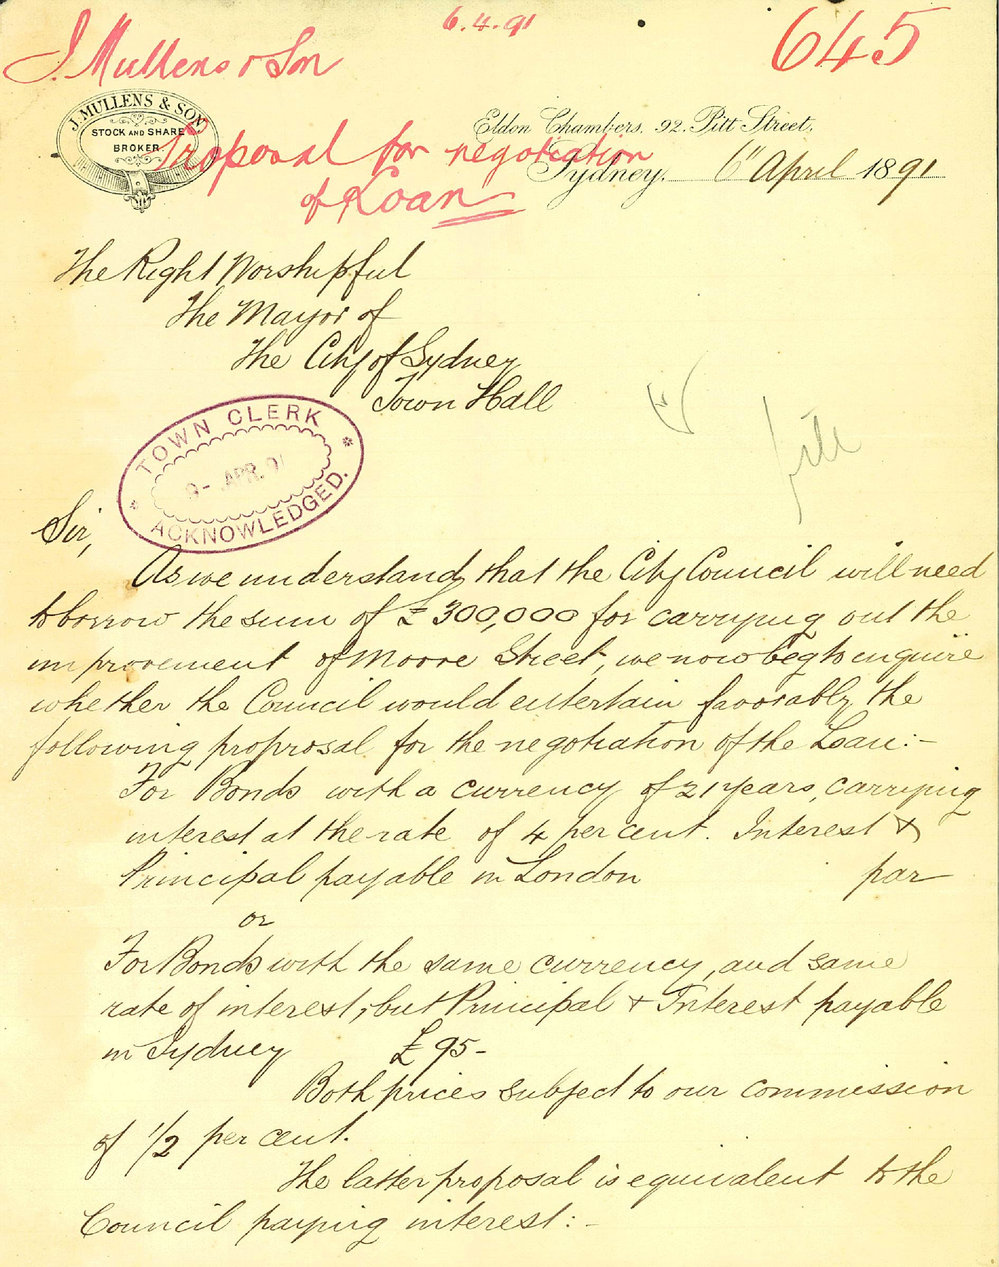 6.4.91
645
J. Mullens & Son
J. MULLENS & SON
STOCK AND SHARE
BROKER.
Eldon Chambers. 92. Pitt Street.
Proposal for negotiation
of Loan
Sydney. 6" April 1891
The Right Worshipful
The Mayor of
The City of Sydney
Town Hall
TOWN CLERK
9- APR. 91
ACKNOWLEDGED.
Sir,
As we understand that the City Council will need
to borrow the sum of £300,000 for carrying out the
improvement of Moore Street, we now beg to enquire
whether the Council would entertain favorably the
following proprosal for the negotiation of the Loan:-
For Bonds with a currency of 21 years, carrying
interest at the rate of 4 per cent. Interest &
Principal payable in London par
or
For Bonds with the same currency, and same
rate of interest, but Principal & Interest payable
in Sydney £95-
Both prices subject to our commission
of 1/2 per cent.
The latter proposal is equivalent to the
Council paying interest:-